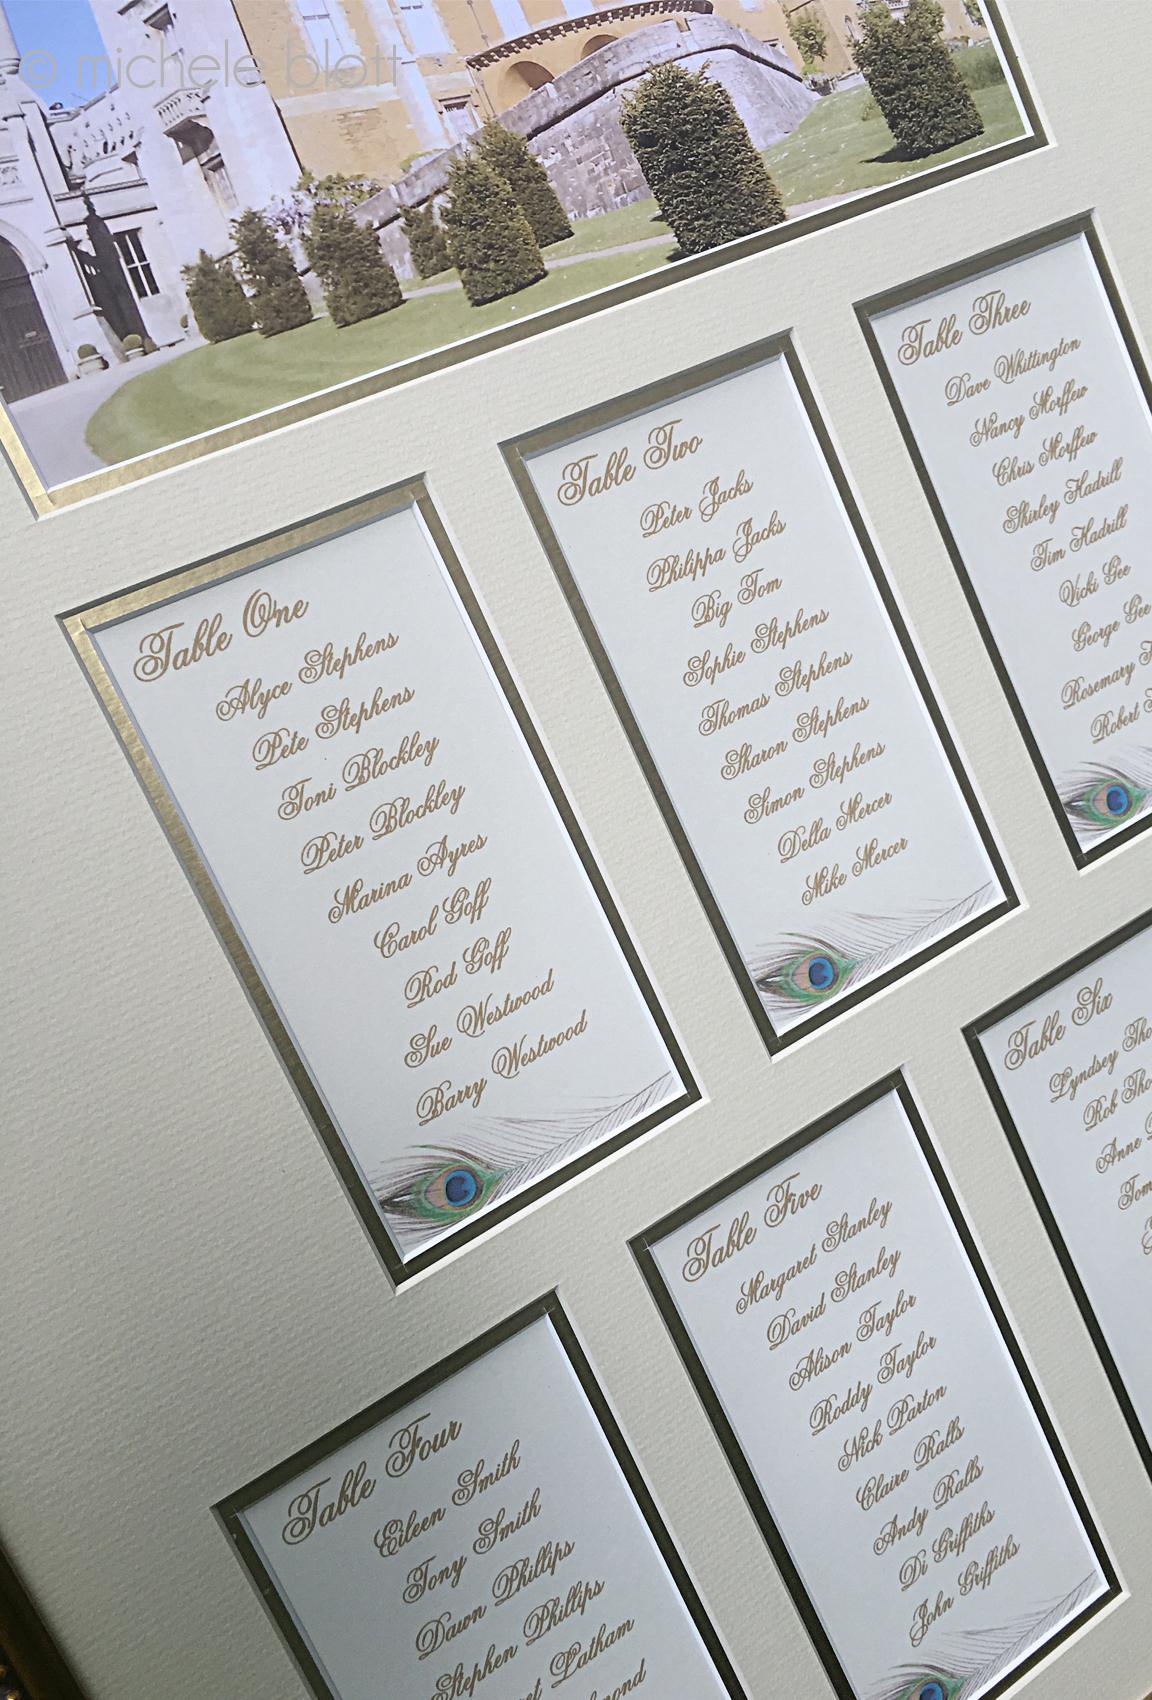 © michele blott
Table One
Alyce Stephens
Pete Stephens
Toni Blockley
Peter Blockley
Marina Ayres
Carol Goff
Rod Goff
Sue Westwood
Barry Westwood
Table Two
Peter Jacks
Philippa Jacks
Big Tom
Sophie Stephens
Thomas Stephens
Sharon Stephens
Simon Stephens
Della Mercer
Mike Mercer
Table Three
Dave Whittington
Nancy Morffew
Chris Morffew
Shirley Hadrill
Tim Hadrill
Vicki Gee
George Gee
Rosemary
Robert
Table Four
Eileen Smith
Tony Smith
Dawn Phillips
Stephen Phillips
Latham
Table Five
Margaret Stanley
David Stanley
Alison Taylor
Roddy Taylor
Nick Parton
Claire Ralls
Andy Ralls
Di Griffiths
John Griffiths
Table Six
Lyndsey
Rob
Anne